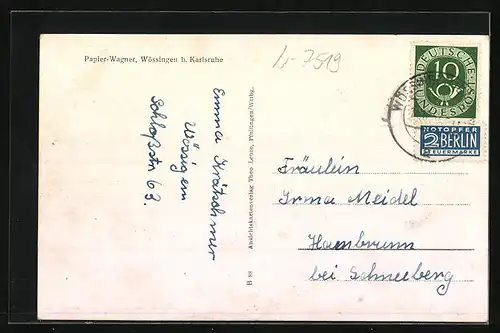 Papier-Wagner, Wössingen b. Karlsruhe
L-7519
Emma Krätschmer
Wössigem
Schloßstr 63.
Ansichtskartenverlag Theo Leute, Pfullingen/Wttbg.
B 88
DEUTSCHE
10
BUNDESPOST
NOTOPFER
2 BERLIN
STEUERMARKE
Fräulein
Irma Meidel
Hambrunn
bei Schneeberg